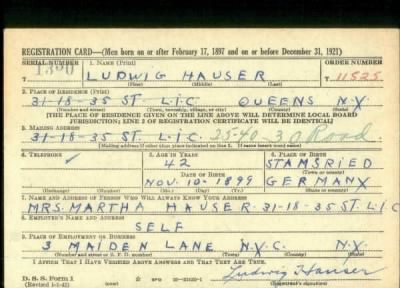 REGISTRATION CARD—(Men born on or after February 17, 1897 and on or before December 31, 1921)
SERIAL NUMBER 1. NAME (Print) ORDER NUMBER
T 1360 LUDWIG HAUSER T 11525
(First) (Middle) (Last)
2. PLACE OF RESIDENCE (Print)
31-18-35 ST. L.I.C. QUEENS N.Y.
(Number and street) (Town, township, village, or city) (County) (State)
[THE PLACE OF RESIDENCE GIVEN ON THE LINE ABOVE WILL DETERMINE LOCAL BOARD
JURISDICTION; LINE 2 OF REGISTRATION CERTIFICATE WILL BE IDENTICAL]
3. MAILING ADDRESS
31-18-35 ST. L.I.C. 25-40-30 Road
[Mailing address if other than place indicated on line 2. If same insert word same]
4. TELEPHONE 5. AGE IN YEARS 6. PLACE OF BIRTH
42 STAMSRIED
DATE OF BIRTH (Town or county)
NOV. 10-1899 GERMANY
(Exchange) (Number) (Mo.) (Day) (Yr.) (State or country)
7. NAME AND ADDRESS OF PERSON WHO WILL ALWAYS KNOW YOUR ADDRESS
MRS. MARTHA HAUSER 31-18-35 ST. L.I.C
8. EMPLOYER'S NAME AND ADDRESS
SELF
9. PLACE OF EMPLOYMENT OR BUSINESS
3 MAIDEN LANE N.Y.C. N.Y.
(Number and street or R. F. D. number) (Town) (County) (State)
I AFFIRM THAT I HAVE VERIFIED ABOVE ANSWERS AND THAT THEY ARE TRUE.
D. S. S. Form 1
(Revised 1-1-42) (over) Ludwig Hauser
(Registrant's signature)